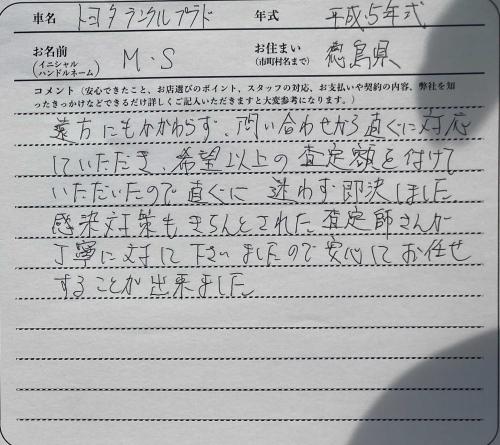 車名 トヨタ ランクルプラド 年式 平成5年式
お名前 (イニシャル ハンドルネーム) M・S お住まい (市町村名まで) 徳島県
コメント（安心できたこと、お店選びのポイント、スタッフの対応、お支払いや契約の内容、弊社を知
ったきっかけなどできるだけ詳しくご記入いただきますと大変参考になります。）
遠方にもかかわらず、問い合わせから直ぐに対応
していただき、希望以上の査定額を付けて
いただいたので直ぐに迷わず即決しました。
感染対策もきちんとされた査定師さんが
丁寧に対して下さいましたので安心してお任せ
することが出来ました。